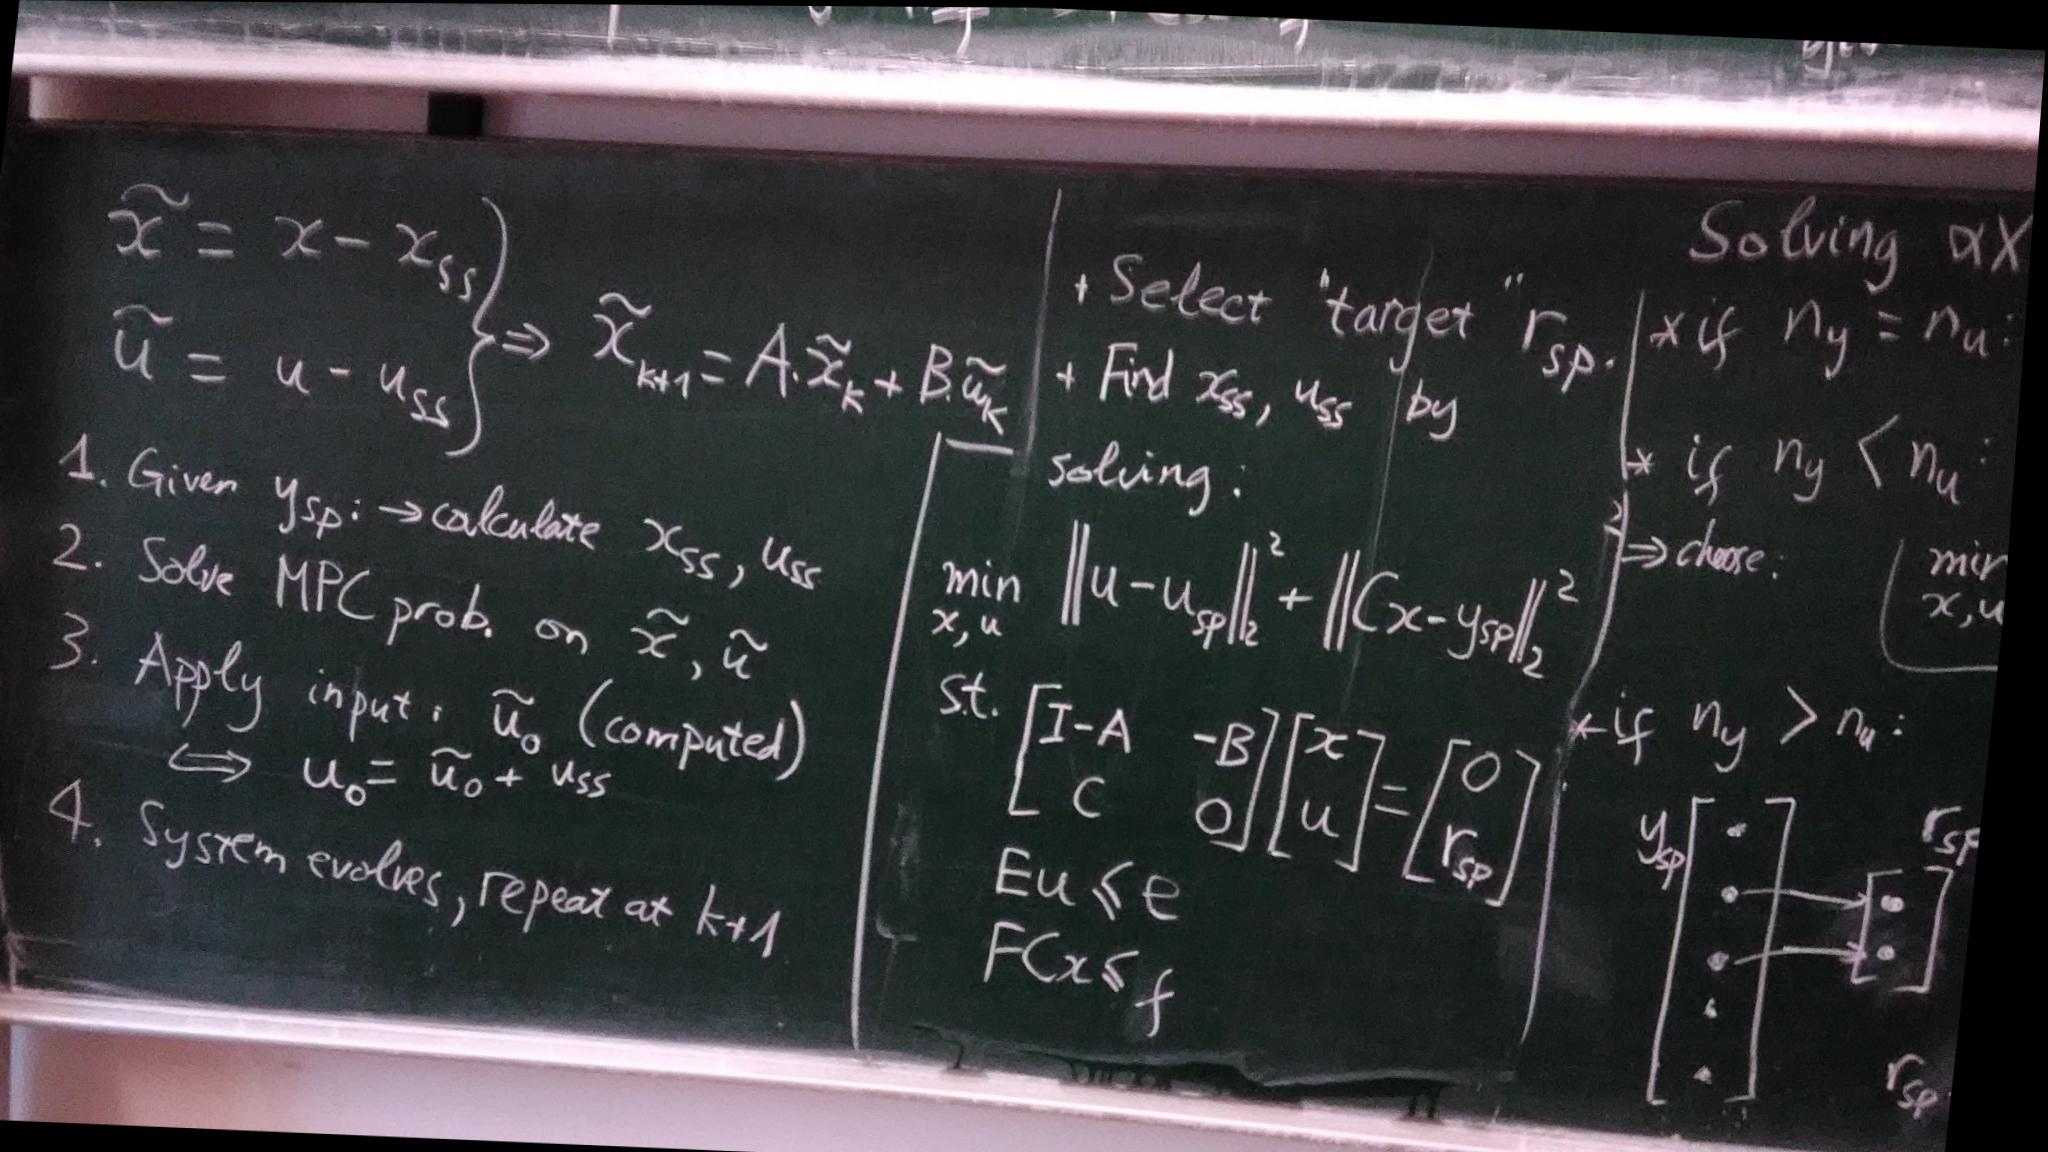 x̃ = x - x_ss
ũ = u - u_ss
} ⇒ x̃_{k+1} = A.x̃_k + B.ũ_k
1. Given y_sp: → calculate x_ss, u_ss
2. Solve MPC prob. on x̃, ũ
3. Apply input: ũ_0 (computed)
⇔ u_0 = ũ_0 + u_ss
4. System evolves, repeat at k+1
+ Select "target" r_sp.
+ Find x_ss, u_ss by
solving:
min ‖u - u_sp‖_2^2 + ‖Cx - y_sp‖_2^2
x, u
s.t. [I-A -B; C 0] [x; u] = [0; r_sp]
Eu ⩽ e
FCx ⩽ f
Solving αX
* if n_y = n_u:
* if n_y < n_u:
⇒ choose: min
x, u
* if n_y > n_u:
y_sp
r_sp
r_sp